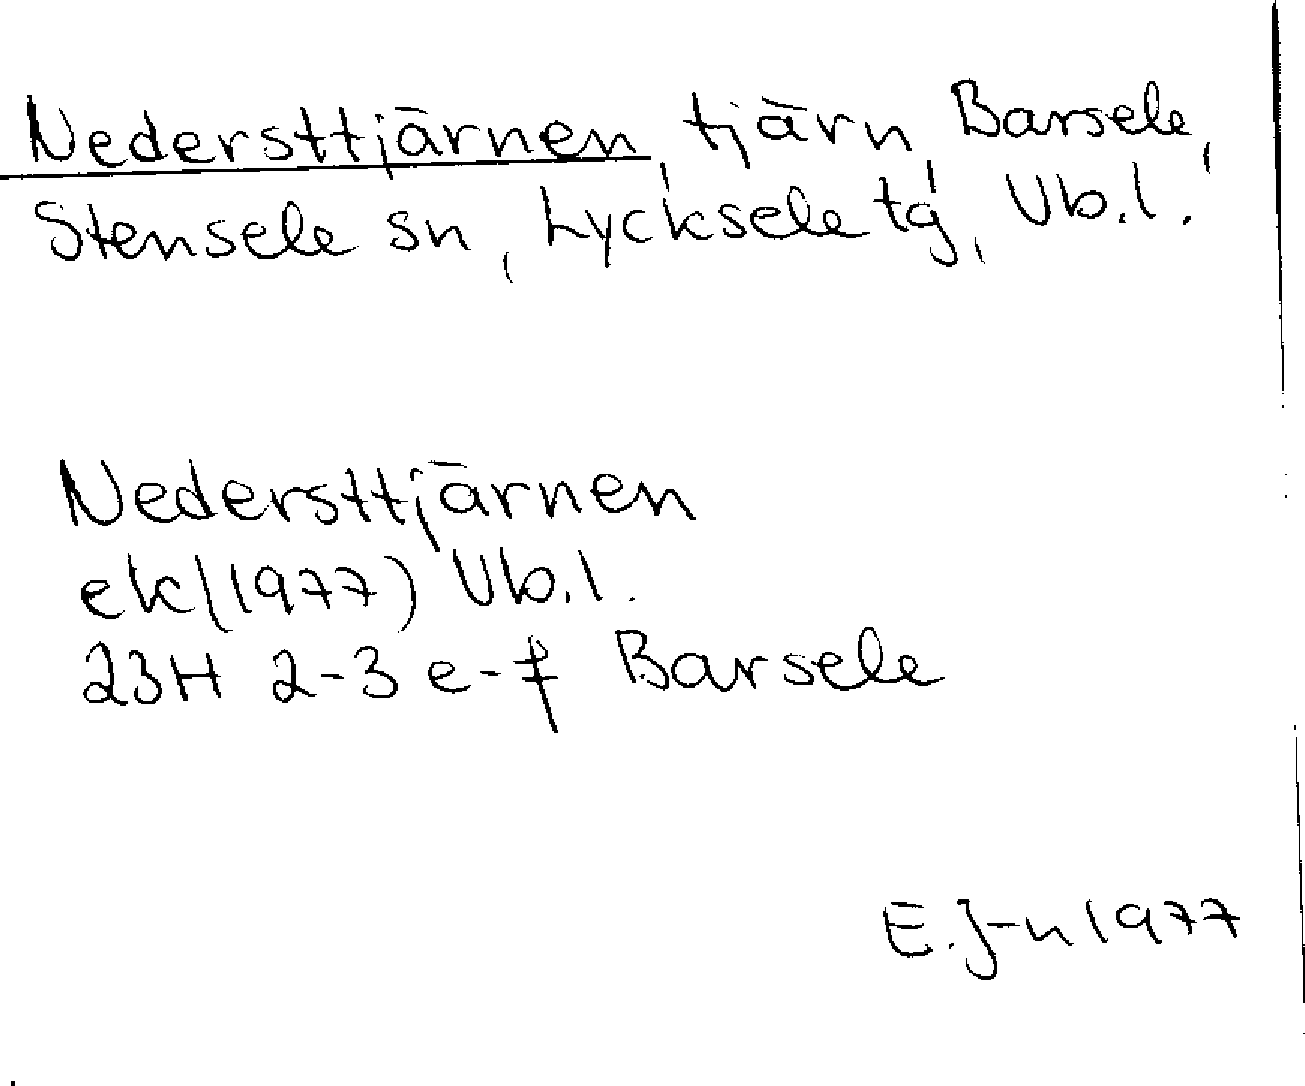 Nedersttjärnen, tjärn, Barsele,
Stensele sn, Lycksele tg, Vb.l.
Nedersttjärnen
ek (1977) Vb.l.
23H 2-3 e-f Barsele
E.J-n 1977